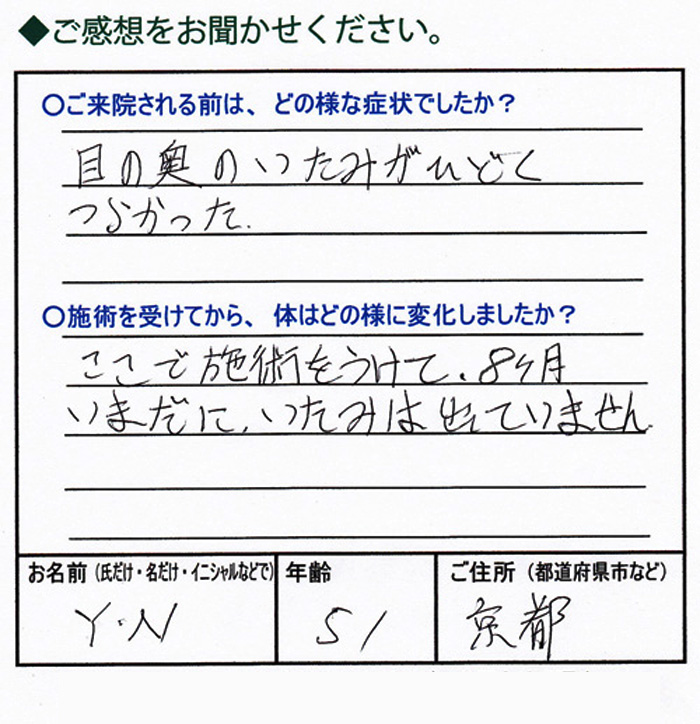 ◆ご感想をお聞かせください。
○ご来院される前は、どの様な症状でしたか？
目の奥のいたみがひどく
つらかった.
○施術を受けてから、体はどの様に変化しましたか？
ここで施術をうけて、8ヶ月
いまだに、いたみは出ていません.
お名前（氏だけ・名だけ・イニシャルなどで） 年齢 ご住所（都道府県市など）
Y・N 51 京都